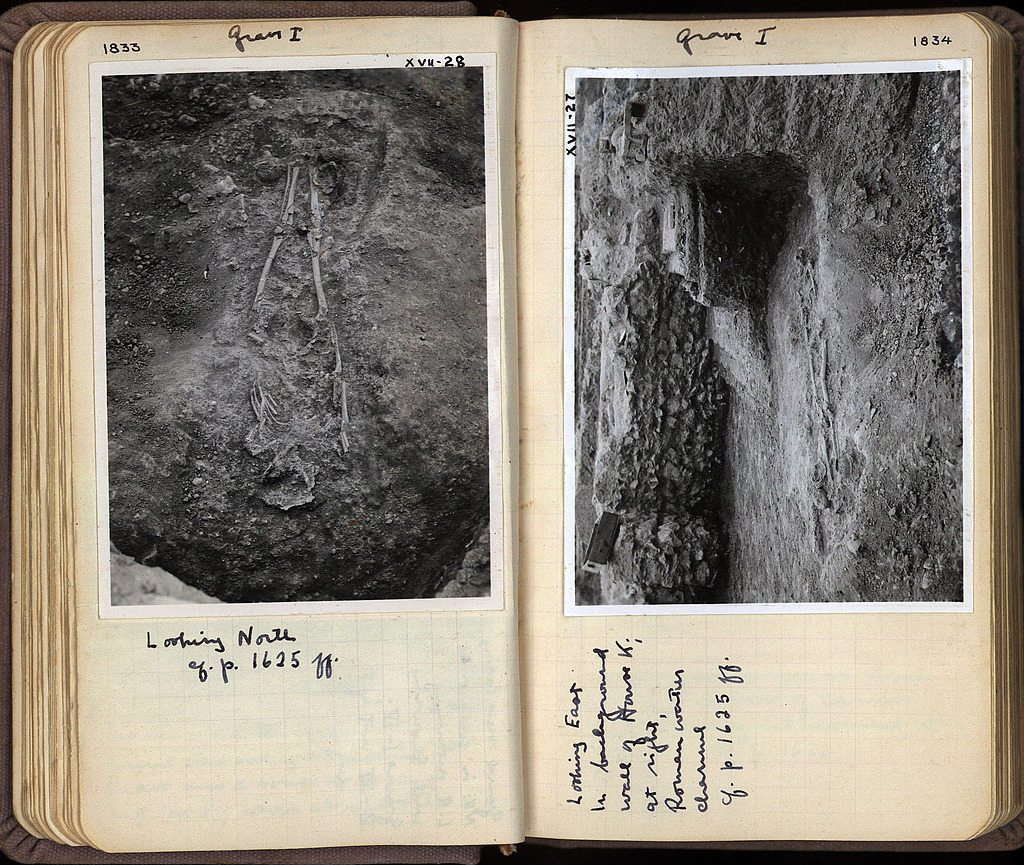 1833
Grave I
XVII-28
Looking North
cf. p. 1625 ff.
Grave I
1834
XVII-27
Looking East
In background
wall of House K;
at right,
Roman water
channel
cf. p. 1625 ff.